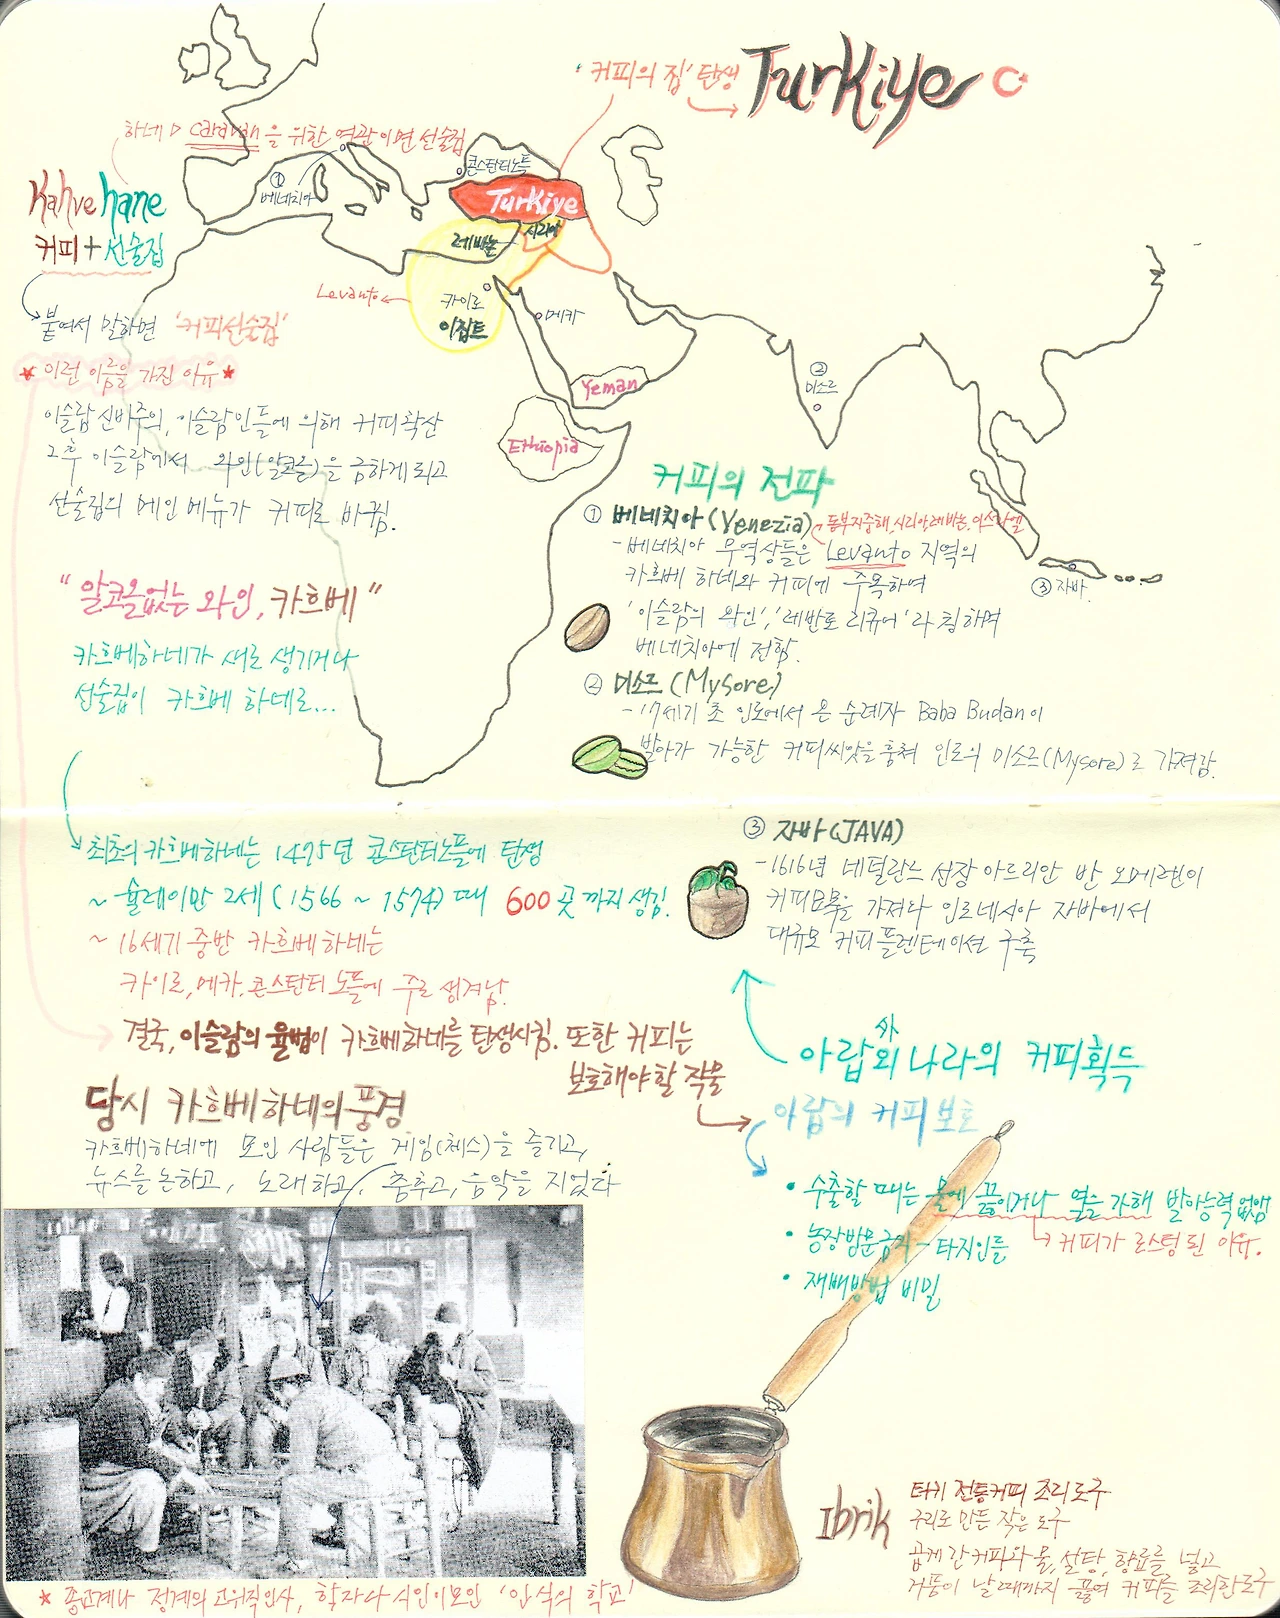 '커피의 집' 탄생
Turkiye
하네 ▷ caravan을 위한 여관이면 선술집
콘스탄티노플
① 베네치아
Kahve hane
커피+선술집
Turkiye
레바논
시리아
Levanto
카이로
이집트
메카
붙여서 말하면 '커피선술집'
★ 이런 이름을 가진 이유 ★
② 미소르
Yeman
이슬람 신비주의, 이슬람인들에 의해 커피확산
그후 이슬람에서 와인(알코올)을 금하게 되고
선술집의 메인 메뉴가 커피로 바뀜.
Ethiopia
커피의 전파
① 베네치아(Venezia)
동부지중해, 시리아, 레바논, 이스라엘
-베네치아 무역상들은 Levanto 지역의
카흐베 하네와 커피에 주목하여
'이슬람의 와인', '레반토 리큐어'라 칭하며
베네치아에 전함.
③ 자바
"알코올없는 와인, 카흐베"
카흐베하네가 새로 생기거나
선술집이 카흐베 하네로...
② 미소르(Mysore)
-17세기 초 인도에서 온 순례자 Baba Budan이
발아가 가능한 커피씨앗을 훔쳐 인도의 미소르(Mysore)로 가져감.
최초의 카흐베하네는 1475년 콘스탄티노플에 탄생
~ 슐레이만 2세(1566 ~ 1574) 때 600곳 까지 생김.
~ 16세기 중반 카흐베 하네는
카이로, 메카, 콘스탄티노플에 주로 생겨남.
결국, 이슬람의 율법이 카흐베하네를 탄생시킴. 또한 커피는
보호해야할 작물
③ 자바(JAVA)
-1616년 네덜란드 선장 아드리안 반 오메렌이
커피묘목을 가져다 인도네시아 자바에서
대규모 커피플렌테이션 구축
外
아랍외 나라의 커피획득
아랍의 커피보호
• 수출할 때는 물에 끓이거나 열을 가해 발아능력 없앰
↳ 커피가 로스팅 된 이유.
• 농장방문금지 - 타지인들
• 재배방법 비밀
당시 카흐베하네의 풍경
카흐베하네에 모인 사람들은 게임(체스)을 즐기고,
뉴스를 논하고, 노래하고, 춤추고, 음악을 지었다
★ 종교계나 정계의 고위직인사, 학자나 시인이 모인 '인식의 학교'
Ibrik
터키 전통커피 조리도구
구리로 만든 작은 도구
곱게 간 커피와 물, 설탕, 향료를 넣고
거품이 날때까지 끓여 커피를 조리한도구